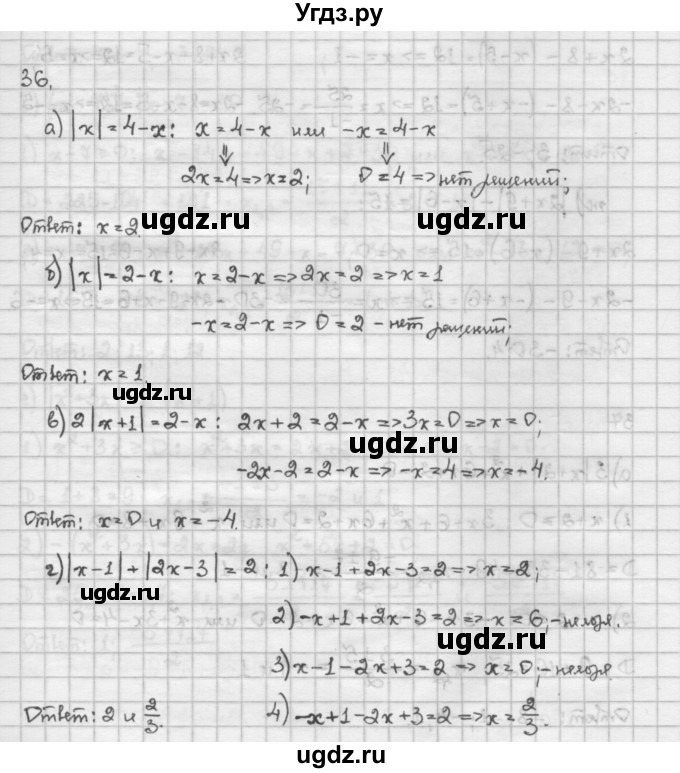 Угдз.ру
36.
а) |x| = 4-x: x = 4-x или -x = 4-x
⇓ ⇓
2x = 4 => x = 2; 0 = 4 => нет решений;
Ответ: x = 2.
ugdz.ru ugdz.ru
б) |x| = 2-x: x = 2-x => 2x = 2 => x = 1
-x = 2-x => 0 = 2 - нет решений;
Ответ: x = 1.
ugdz.ru
в) 2|x+1| = 2-x: 2x+2 = 2-x => 3x = 0 => x = 0;
ugdz.ru
-2x-2 = 2-x => -x = 4 => x = -4.
Ответ: x = 0 и x = -4.
г) |x-1| + |2x-3| = 2: 1) x-1+2x-3 = 2 => x = 2;
ugdz.ru
2) -x+1+2x-3 = 2 => x = 6, - не подх.
ugdz.ru
3) x-1-2x+3 = 2 => x = 0, - не подх.
Ответ: 2 и 2/3. 4) -x+1-2x+3 = 2 => x = 2/3.
ugdz.ru